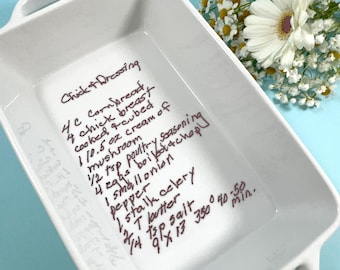 Chick & Dressing
4 C cornbread
4 chick breast
cooked & cubed
1 10.5 oz cream of
mushroom
1/2 tsp poultry seasoning
4 eggs boiled & chop
1 small onion
pepper
1 stalk celery
butter
3/4 tsp salt
9 x 13 350° 40-50
min.